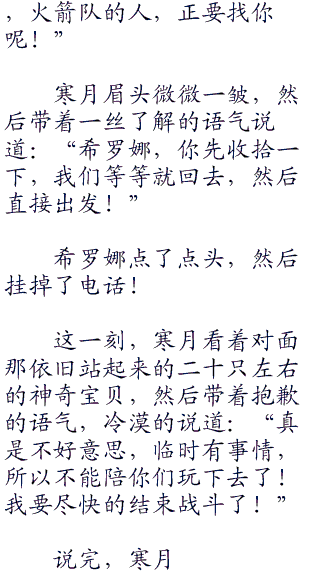 ，火箭队的人，正要找你
呢！”
寒月眉头微微一皱，然
后带着一丝了解的语气说
道：“希罗娜，你先收拾一
下，我们等等就回去，然后
直接出发！”
希罗娜点了点头，然后
挂掉了电话！
这一刻，寒月看着对面
那依旧站起来的二十只左右
的神奇宝贝，然后带着抱歉
的语气，冷漠的说道：“真
是不好意思，临时有事情，
所以不能陪你们玩下去了！
我要尽快的结束战斗了！”
说完，寒月